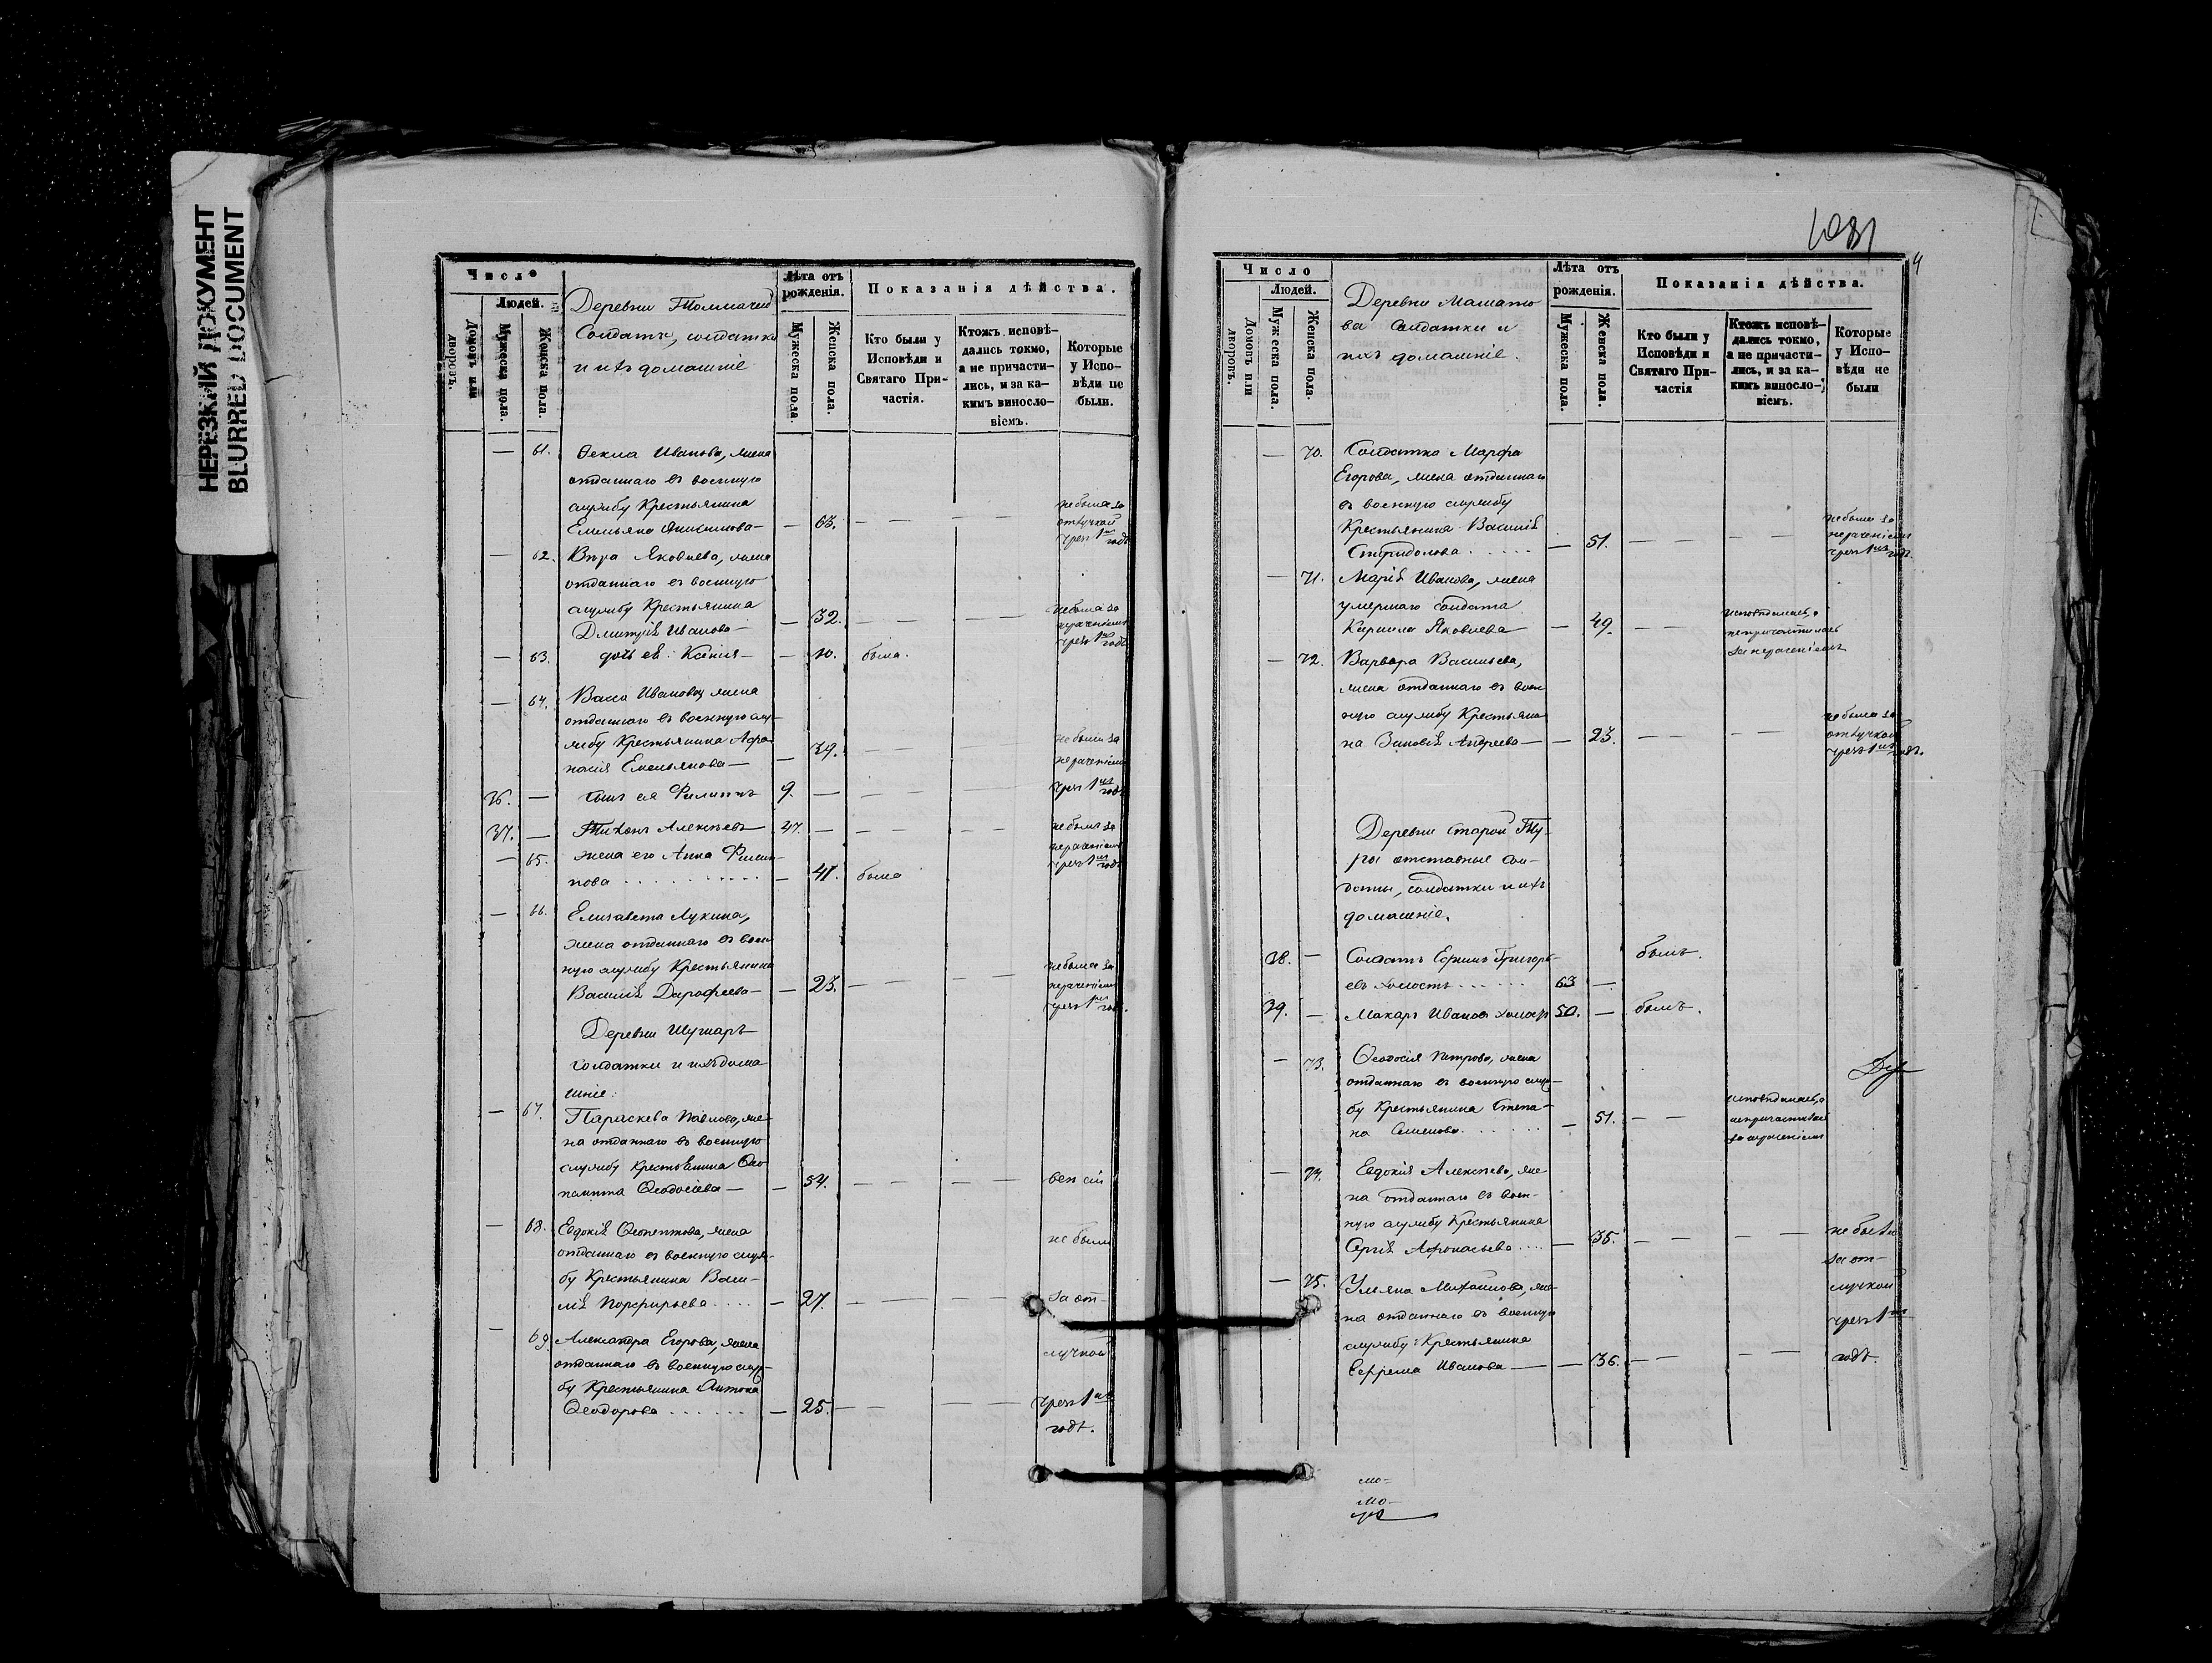 НЕРЕЗКИЙ ДОКУМЕНТ
BLURRED DOCUMENT
Число
Людей.
Домовъ или дворовъ.
Мужеска пола.
Женска пола.
Деревни
Солдатъ, солдатки
и ихъ домашніе
Лѣта отъ рожденія.
Мужеска пола.
Женска пола.
Показанія дѣйства.
Кто были у Исповѣди и Святаго Причастія.
Ктожъ исповѣ-
дались токмо,
а не причасти-
лись, и за ка-
кимъ виносло-
віемъ.
Которые
у Испо-
вѣди не
были.
— 61. Ѳекла Иванова, жена
отданнаго въ военную
службу Крестьянина
Емельяна — — 63. — — — — не была за отлучкой чрезъ 1ин годъ
— 62. Вѣра Яковлева, жена
отданнаго въ военную
службу Крестьянина
Дмитрія Иванова — — 32. — — — — не была за нераченіемъ чрезъ 1ин годъ
— 63. дочь ея: Ксенія — — 10. была.
— 64. Васса Иванова, жена
отданнаго въ военную слу-
жбу Крестьянина Афа-
насія Емельянова — — 39. — — — — не были за нераченіемъ
36. — сынъ ея Филиппъ 9. — — — — чрезъ 1ин годъ
37. — Тихонъ Алексѣевъ 47. — — — — не былъ за нераченіемъ чрезъ 1ин годъ
— 65. жена его Анна Филип-
пова . . . . . . — 41. была
— 66. Елизавета Лукина,
жена отданнаго въ воен
ную службу Крестьянина
Василія Дарофеева — — 23. — — — не была за нераченіемъ чрезъ 1ин год.
Деревни Шушаръ
солдатки и ихъ дома
шніе:
— 67. Параскева Павлова, же-
на отданнаго въ военную
службу Крестьянина
Ѳеодосіева — — 54. — — — — всѣ сіи
— 68. Евдокія жена
отданнаго въ военную служ-
бу Крестьянина Васи- не были
лія Порфирьева . . . . — 27. — — — — за от-
— 69. Александра Егорова, жена
отданнаго въ военную служ- лучкой
бу Крестьянина Антона
Ѳеодорова . . . . . . — 25. — — — — чрезъ 1ин
годъ.
1031
4
Число
Людей.
Домовъ или дворовъ.
Мужеска пола.
Женска пола.
Деревни
Солдатки и
ихъ домашніе.
Лѣта отъ рожденія.
Мужеска пола.
Женска пола.
Показанія дѣйства.
Кто были у Исповѣди и Святаго Причастія
Ктожъ исповѣ-
дались токмо,
а не причасти-
лись, и за ка-
кимъ виносло-
віемъ.
Которые
у Испо-
вѣди не
были
— 70. Солдатка Марфа
Егорова, жена отданнаго
въ военную службу
Крестьянина Василія
Спиридонова . . . . . — 51. — — — — не была за нераченіемъ чрезъ 1ин годъ.
— 71. Марія Иванова, жена
умершаго солдата
Кирилла Яковлева — — 49. — — исповѣдалась, а не причастилась за нераченіемъ
— 72. Варвара Васильева,
жена отданнаго въ воен
ную службу Крестьяни
на Зиновія Андреева — — 23. — — — — не была за отлучкой чрезъ 1ин годъ.
Деревни Старой Ту-
ры отставные сол-
даты, солдатки и ихъ
домашніе.
38. — Солдатъ Ефимъ Григорь-
евъ холостъ . . . . . . 63 — былъ.
39. — Макаръ Ивановъ холостъ 50. — былъ.
— 73. Ѳеодосія Петрова, жена
отданнаго въ военную служ-
бу Крестьянина Степа-
на Семенова . . . . . . — 51. — — исповѣдалась, а не причастилась за нераченіемъ
— 74. Евдокія Алексѣева, же-
на отданнаго въ воен-
ную службу Крестьянина
Сергія Афонасьева . . . . — 35. — — — — не были
за от-
— 75. Ульяна Михайлова, же- лучкой
на отданнаго въ военную чрезъ 1ин
службу Крестьянина
Ефрема Иванова — — 36. — — — — годъ.